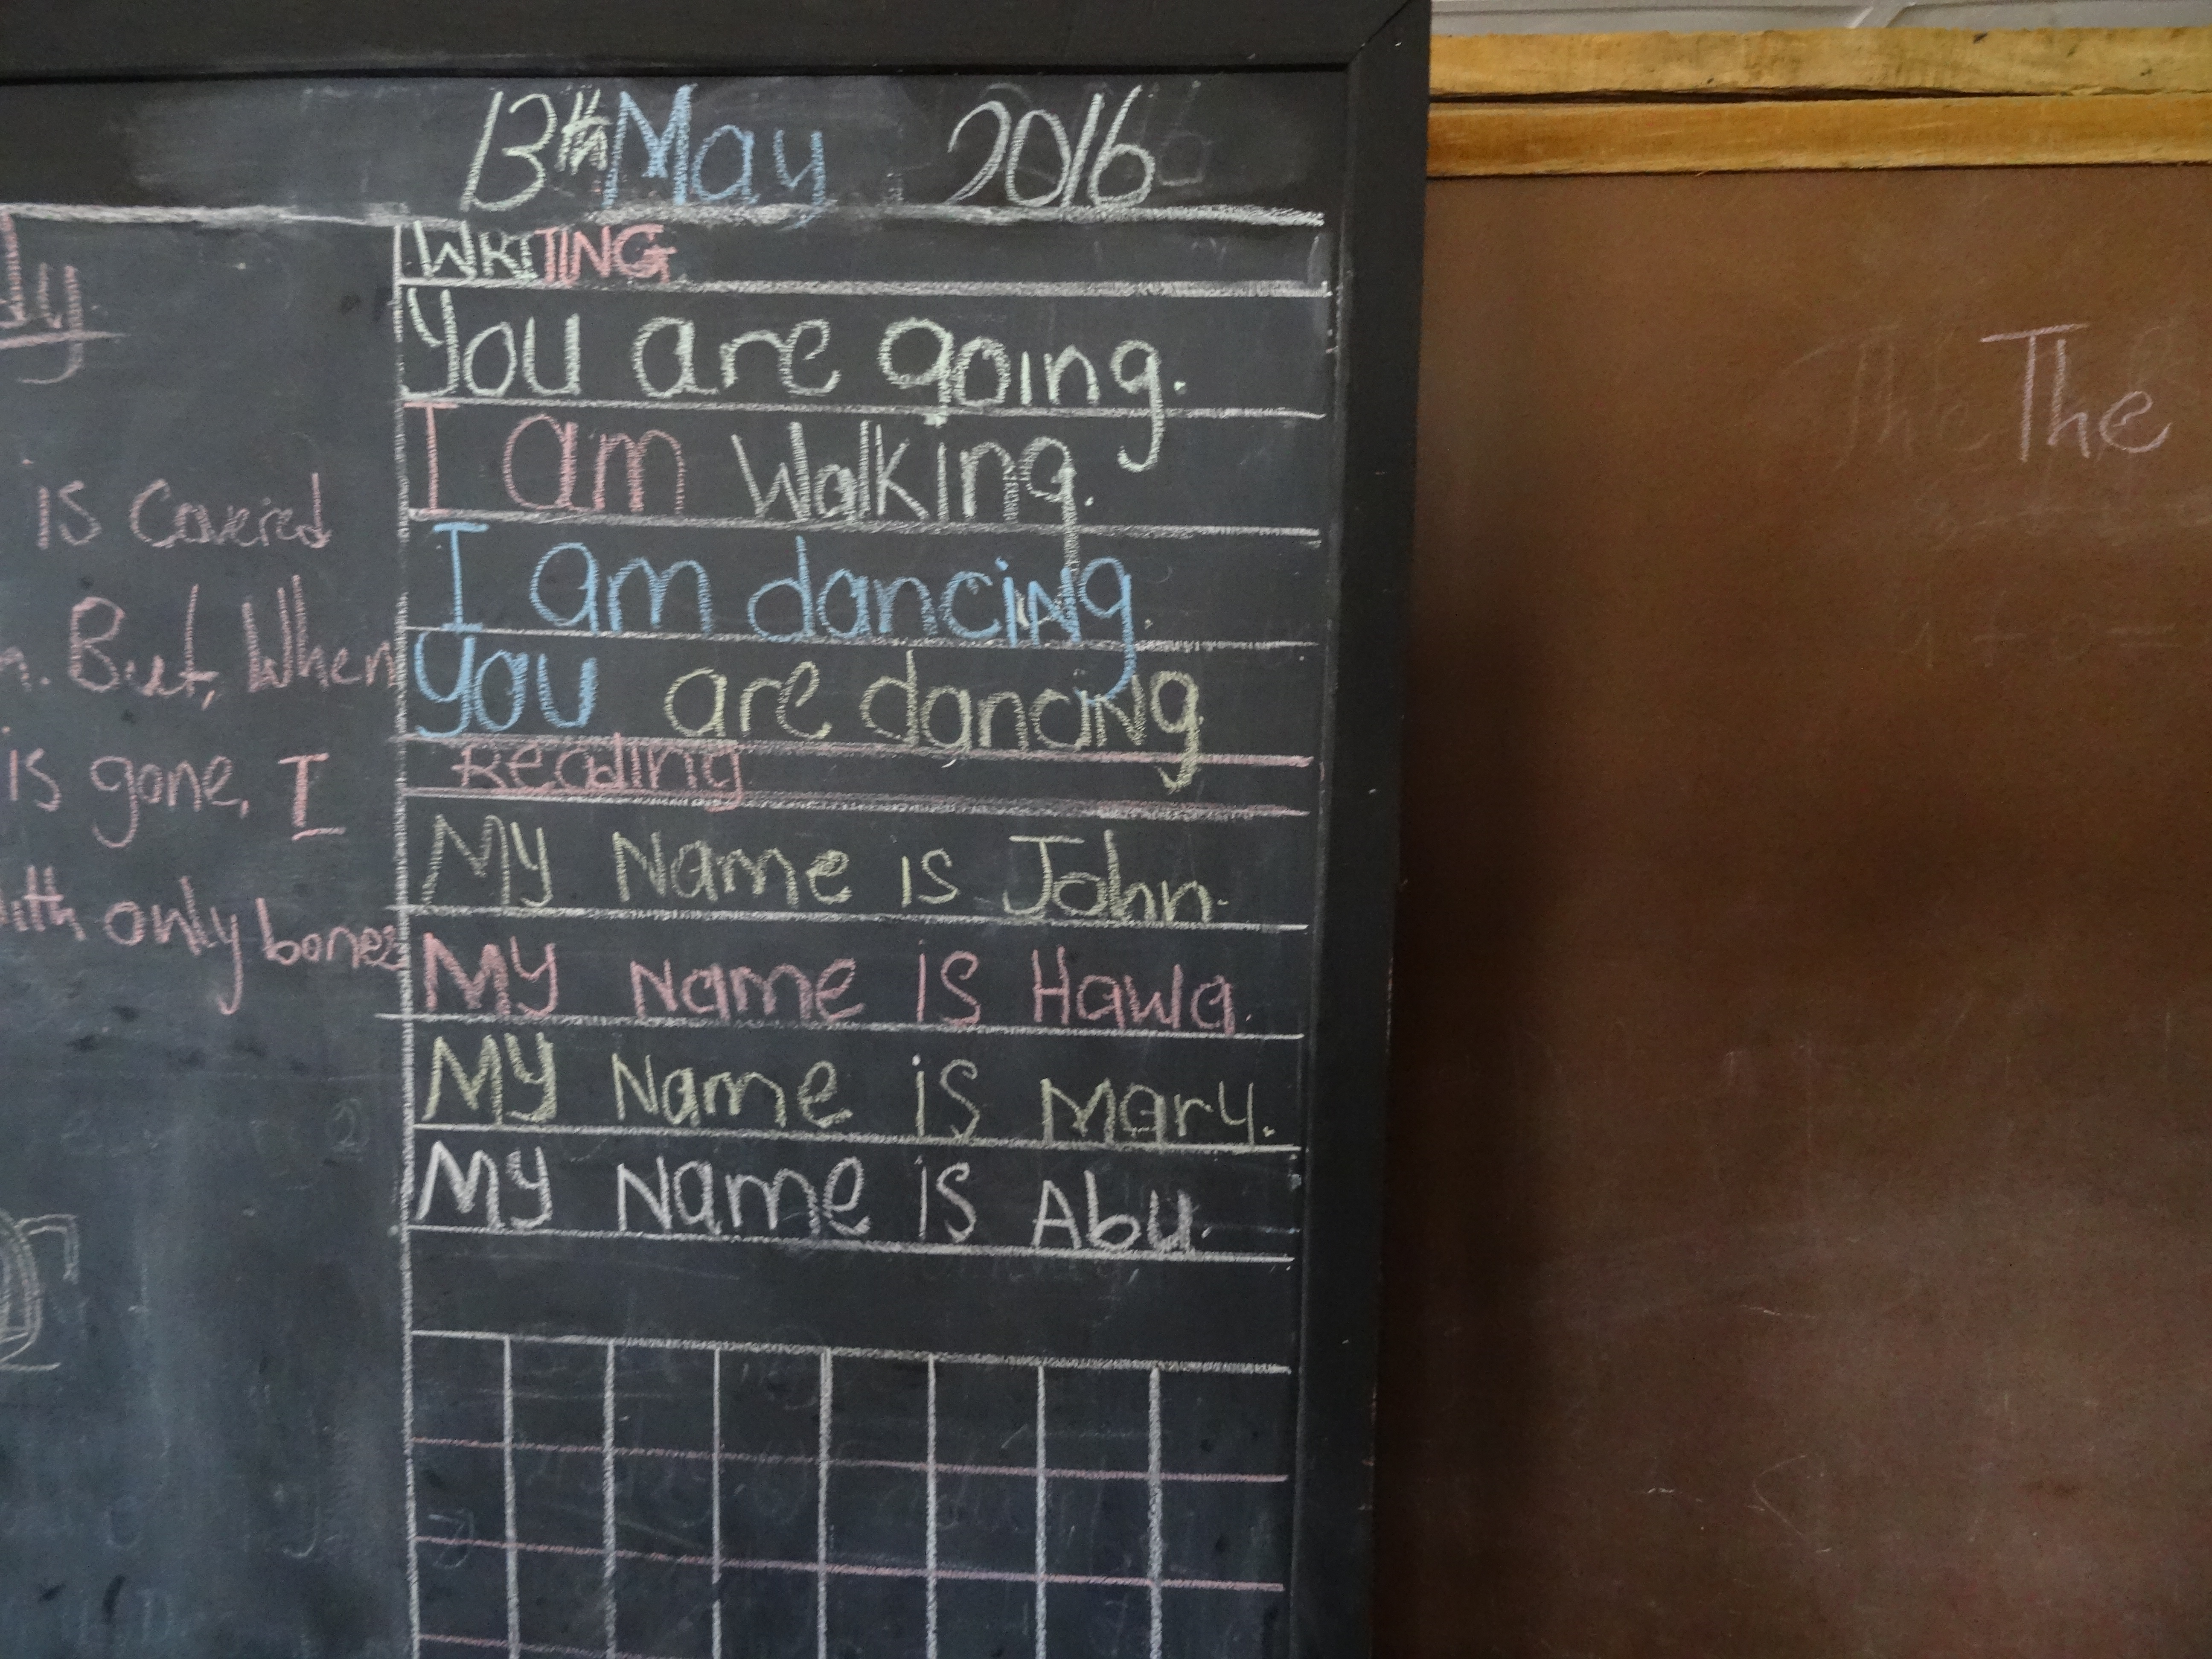 13th May 2016
is Covered
But, When
is gone, I
with only bones
WRITING
You are going.
I am Walking.
I am dancing.
You are dancing
Reading
My Name is John.
My Name is Hawa.
My Name is Mary.
My Name is Abu.
The